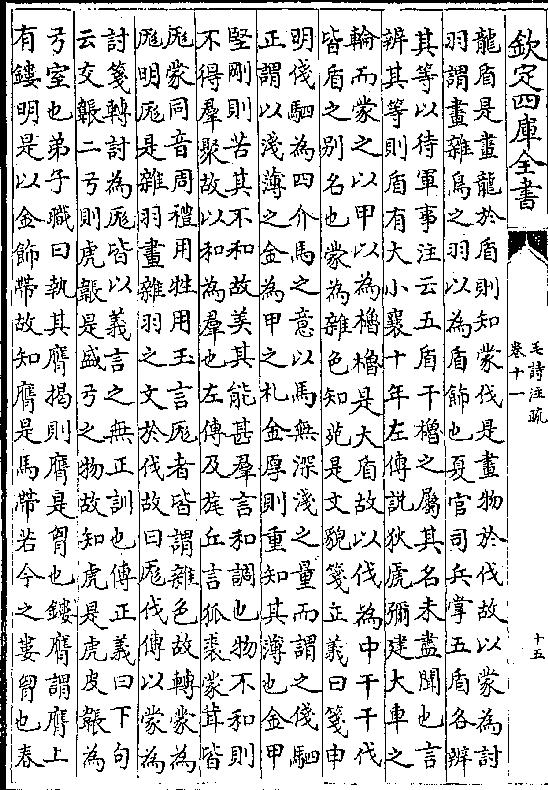 欽定四庫全書
毛詩注疏
卷十一
十五
龍盾是畫龍於盾則知蒙伐是畫物於伐故以蒙為討
羽謂畫雜鳥之羽以為盾飾也夏官司兵掌五盾各辨
其等以待軍事注云五盾干櫓之屬其名未盡聞也言
辨其等則盾有大小襄十年左傳說狄虎彌建大車之
輪而蒙之以甲以為櫓櫓是大盾故以伐為中干干伐
皆盾之別名也蒙為雜色知苑是文貌箋正義曰箋申
明俴駟為四介馬之意以馬無深淺之量而謂之俴駟
正謂以淺薄之金為甲之札金厚則重知其薄也金甲
堅剛則苦其不和故美其能甚羣言和調也物不和則
不得羣聚故以和為羣也左傳及旄丘言狐裘蒙茸皆
厖蒙同音周禮用牲用玉言厖者皆謂雜色故轉蒙為
厖明厖是雜羽畫雜羽之文於伐故曰厖伐傳以蒙為
討箋轉討為厖皆以義言之無正訓也傳正義曰下句
云交韔二弓則虎韔是盛弓之物故知虎是虎皮韔為
弓室也弟子職曰執其膺揭則膺是胷也鏤膺謂膺上
有鏤明是以金飾帶故知膺是馬帶若今之婁胷也春